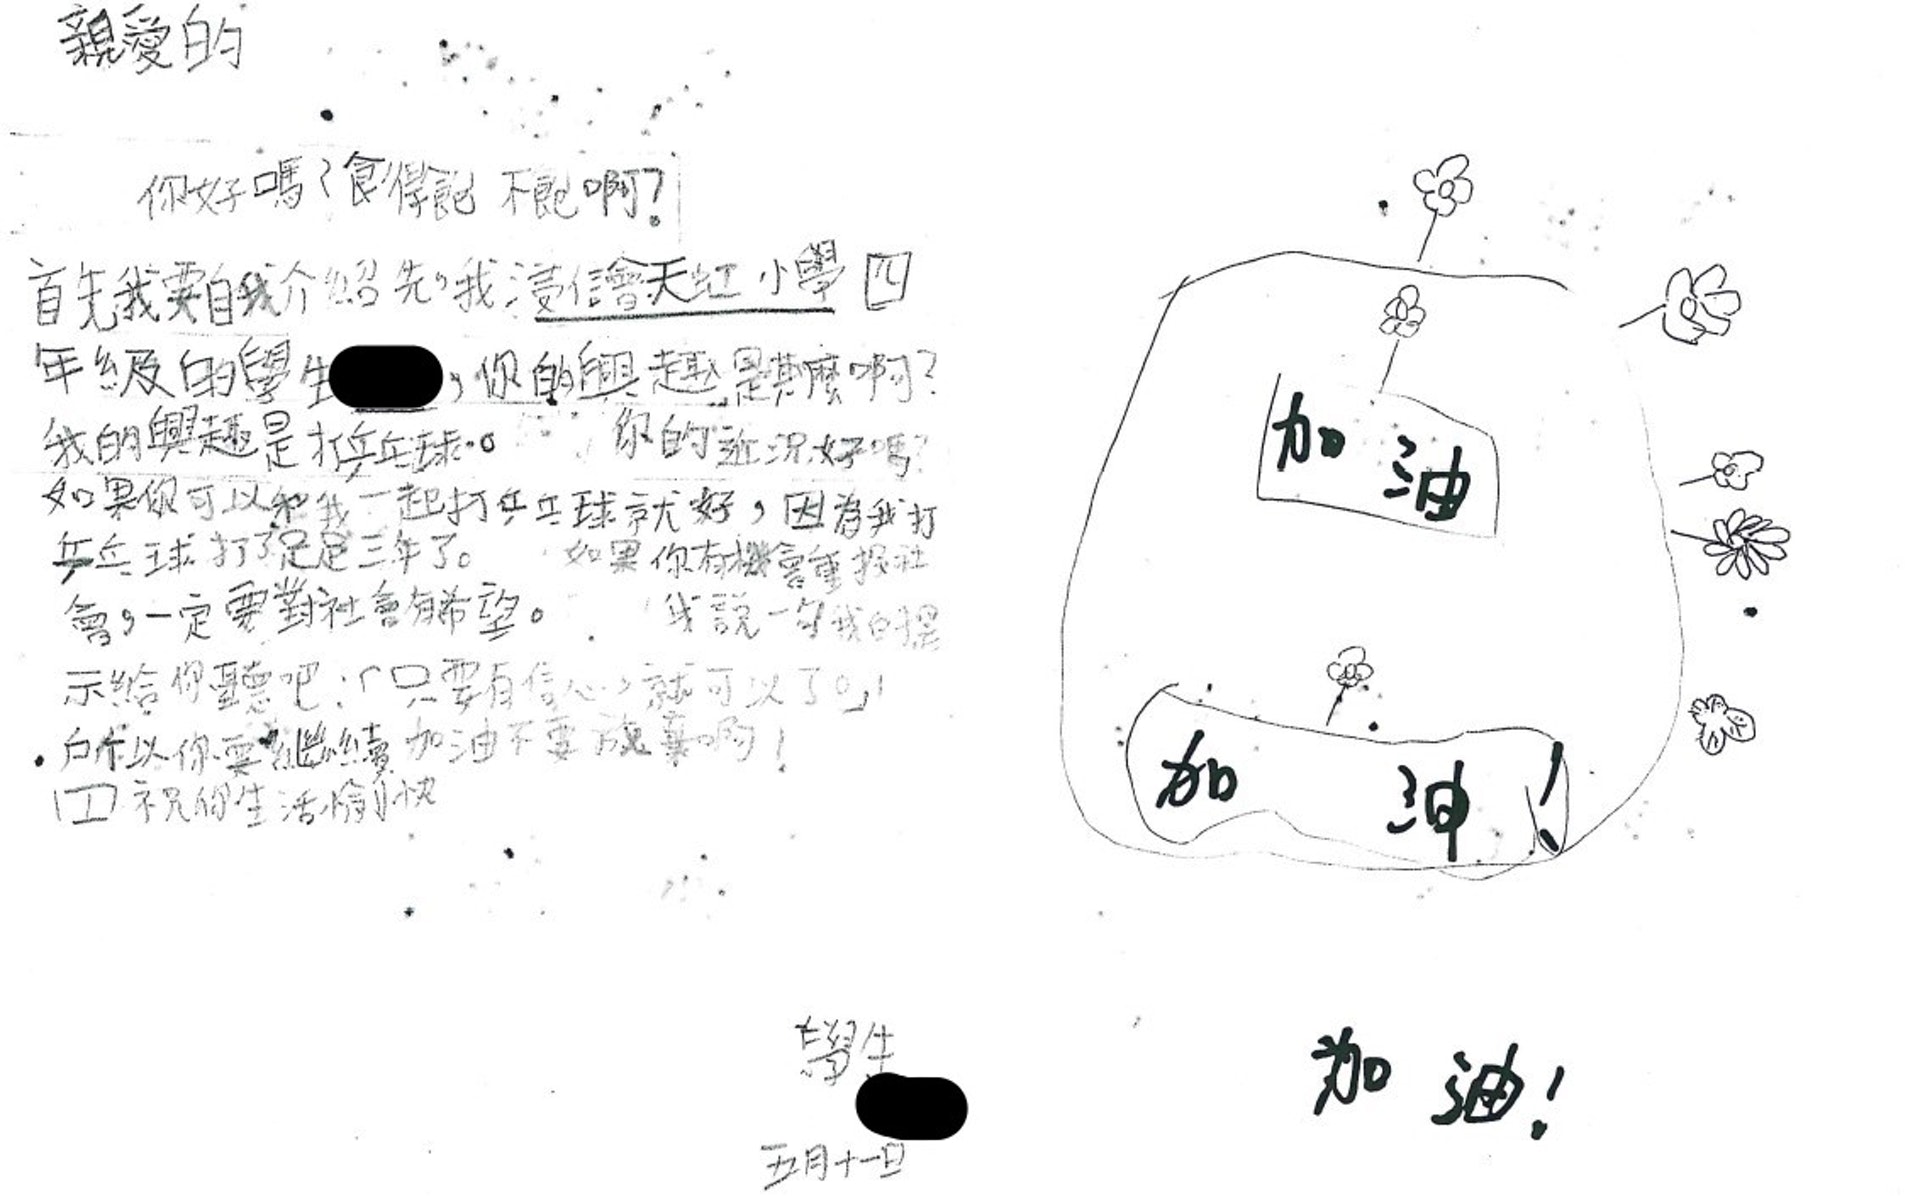 親愛的
你好嗎？食得飽不飽啊？
首先我要自我介紹先，我浸信會天虹小學四
年級的學生，你的興趣是甚麼啊？
我的興趣是打乒乓球。你的近況好嗎？
如果你可以和我一起打乒乓球就好，因為我打
乒乓球打了足足三年了。如果你有機會重投社
會，一定要對社會有希望。我說一句我的提
示給你聽吧：「只要有信心，就可以了。」
所以你要繼續加油不要放棄啊！
祝你生活愉快
學生
五月十一日
加油
加油！
加油！